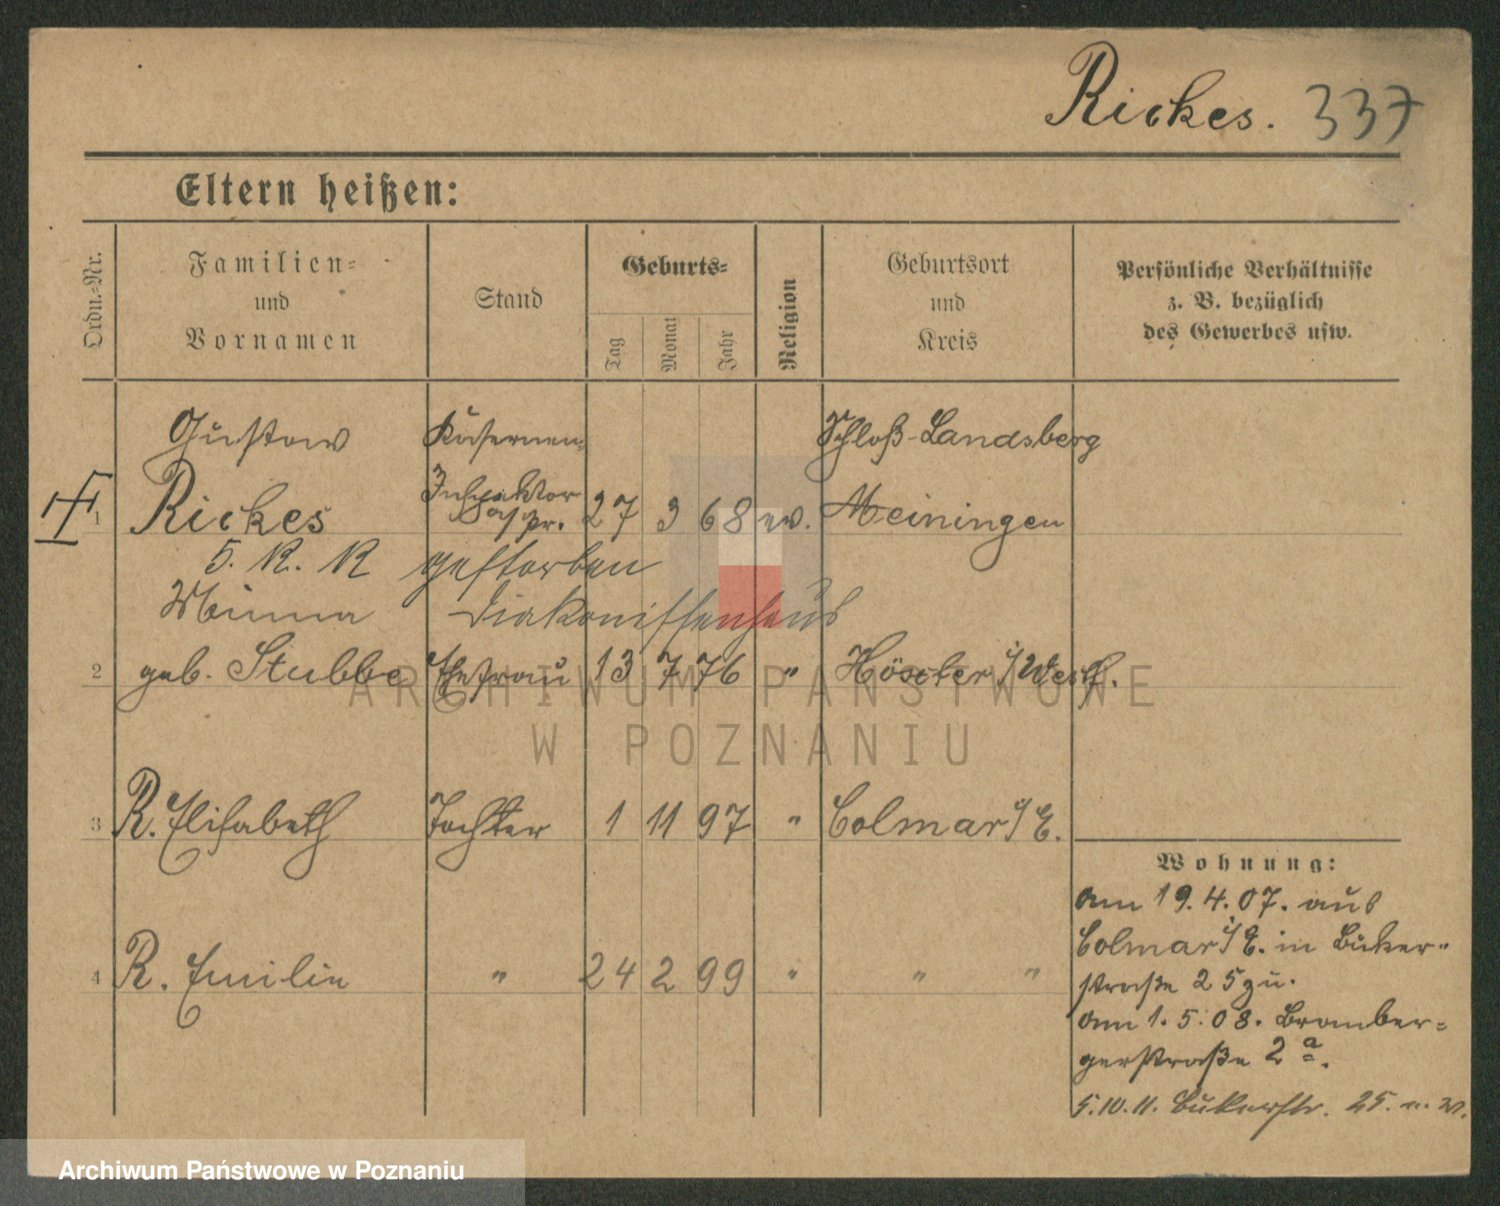 Rickes. 337
Eltern heißen:
Ordn.-Nr.
Familien-
und
Vornamen
Stand
Geburts-
Tag
Monat
Jahr
Religion
Geburtsort
und
Kreis
Persönliche Verhältnisse
z. B. bezüglich
des Gewerbes usw.
Gustav Kasernen- Schloß-Landsberg
1 Rickes Inspektor 27 3 68 ev. Meiningen
gestorben
Minna Diakonissenhaus
2 geb. Stubbe Ehefrau 13 7 76 " Höxter i/Westf.
ARCHIWUM PAŃSTWOWE
W POZNANIU
3 R. Elisabeth Tochter 1 11 97 " Colmar i/E.
4 R. Emilie " 24 2 99 " " "
Wohnung:
am 19.4.07. aus
Colmar i/E. in Buker-
straße 25 zu.
am 1.5.08. Bromber-
gerstraße 2a.
5.10.11. Bukerstr. 25.
Archiwum Państwowe w Poznaniu